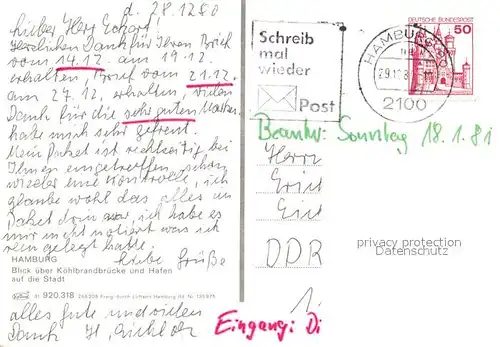 d. 28.12.80
lieber Herr Eckart!
Herzlichen Dank für Ihren Brief
vom 14.12. am 19.12.
erhalten, Brief vom 21.12.
am 27.12. erhalten. Vielen
Dank für die sehr guten Marken
habe mich sehr gefreut.
Mein Paket ist rechtzeitig bei
Ihnen eingetroffen, schon
wieder eine Kontrolle, ich
glaube wohl das alles im
Paket drin war, ich habe es
mir nicht notiert was ich
rein gelegt hatte.
liebe Grüße
HAMBURG
Blick über Köhlbrandbrücke und Hafen
auf die Stadt
41 920.318
alles gute und vielen
Dank H.
Schreib
mal
wieder
Post
DEUTSCHE BUNDESPOST
50
HAMBURG 90
2100
Beantw: Sonntag 18.1.81
Herrn
DDR
privacy protection
Datenschutz
1
Eingang: Di